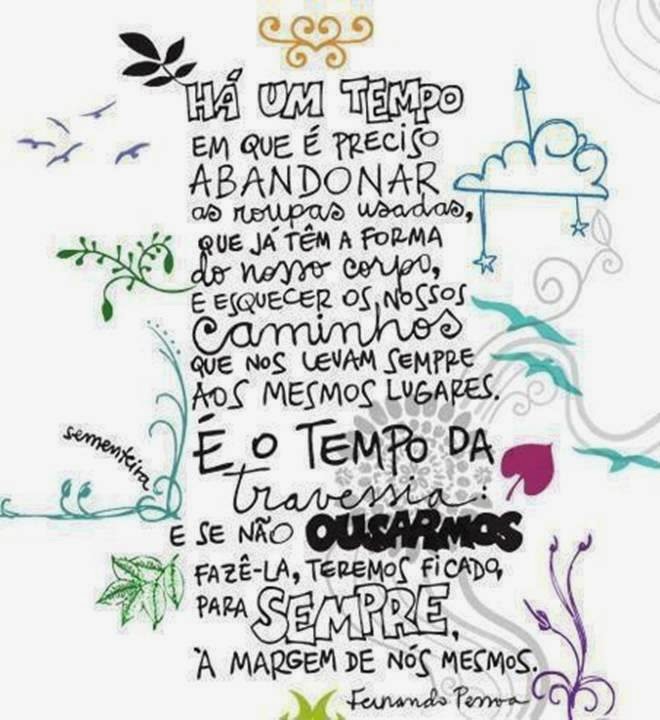 HÁ UM TEMPO
EM QUE É PRECISO
ABANDONAR
as roupas usadas,
QUE JÁ TÊM A FORMA
do nosso corpo,
E ESQUECER OS NOSSOS
Caminhos
QUE NOS LEVAM SEMPRE
AOS MESMOS LUGARES.
É O TEMPO DA
travessia:
E SE NÃO OUSARMOS
FAZÊ-LA, TEREMOS FICADO,
PARA SEMPRE,
À MARGEM DE NÓS MESMOS.
Fernando Pessoa
sementeira